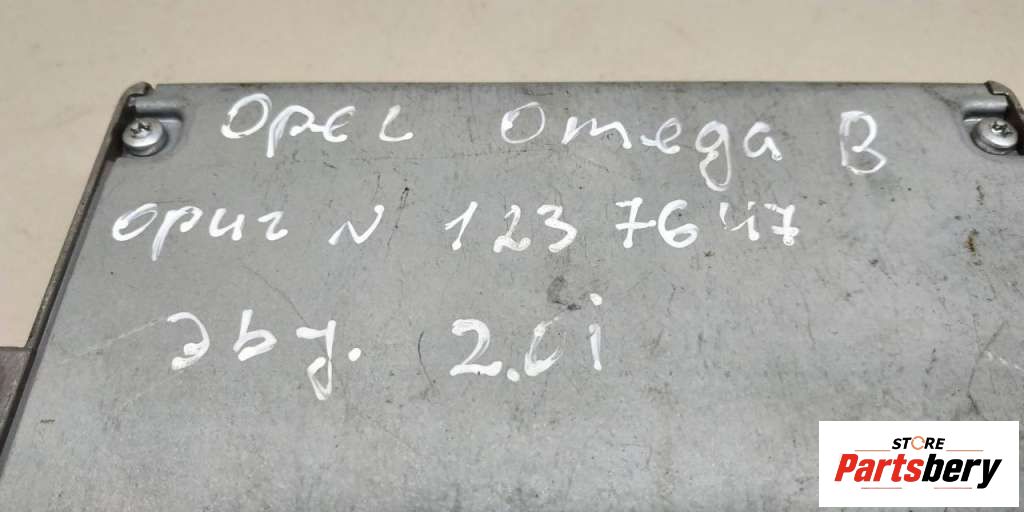 Opel Omega B
ориг N 123 76 47
эbу. 2.0i
STORE
Partsbery